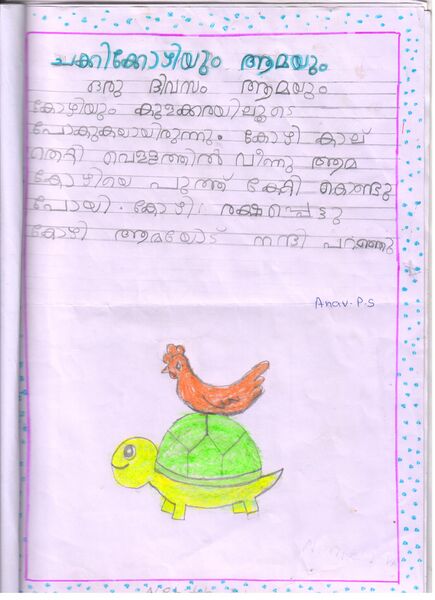 ചക്കിക്കോഴിയും ആമയും
ഒരു ദിവസം ആമയും
കോഴിയും കുളക്കരയിലൂടെ
പോകുകയായിരുന്നു. കോഴി കാല്
തെറ്റി വെള്ളത്തിൽ വീന്നു ആമ
കോഴിയെ പുറത്ത് കേറ്റി കൊണ്ടു
പോയി. കോഴി രക്ഷപ്പെട്ടു
കോഴി ആമയോട് നന്ദി പറഞ്ഞു
Anav. P.S